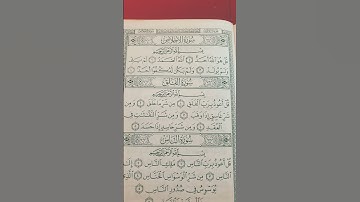 سُورَةُ الْإِخْلَاصِ
بِسْمِ اللَّهِ الرَّحْمَٰنِ الرَّحِيمِ
قُلْ هُوَ اللَّهُ أَحَدٌ ١ اللَّهُ الصَّمَدُ ٢ لَمْ يَلِدْ
وَلَمْ يُولَدْ ٣ وَلَمْ يَكُن لَّهُ كُفُوًا أَحَدٌ ٤
سُورَةُ الْفَلَقِ
بِسْمِ اللَّهِ الرَّحْمَٰنِ الرَّحِيمِ
قُلْ أَعُوذُ بِرَبِّ الْفَلَقِ ١ مِن شَرِّ مَا خَلَقَ ٢ وَمِن
شَرِّ غَاسِقٍ إِذَا وَقَبَ ٣ وَمِن شَرِّ النَّفَّاثَاتِ فِي
الْعُقَدِ ٤ وَمِن شَرِّ حَاسِدٍ إِذَا حَسَدَ ٥
سُورَةُ النَّاسِ
بِسْمِ اللَّهِ الرَّحْمَٰنِ الرَّحِيمِ
قُلْ أَعُوذُ بِرَبِّ النَّاسِ ١ مَلِكِ النَّاسِ ٢ إِلَٰهِ
النَّاسِ ٣ مِن شَرِّ الْوَسْوَاسِ الْخَنَّاسِ ٤ الَّذِي
يُوَسْوِسُ فِي صُدُورِ النَّاسِ ٥